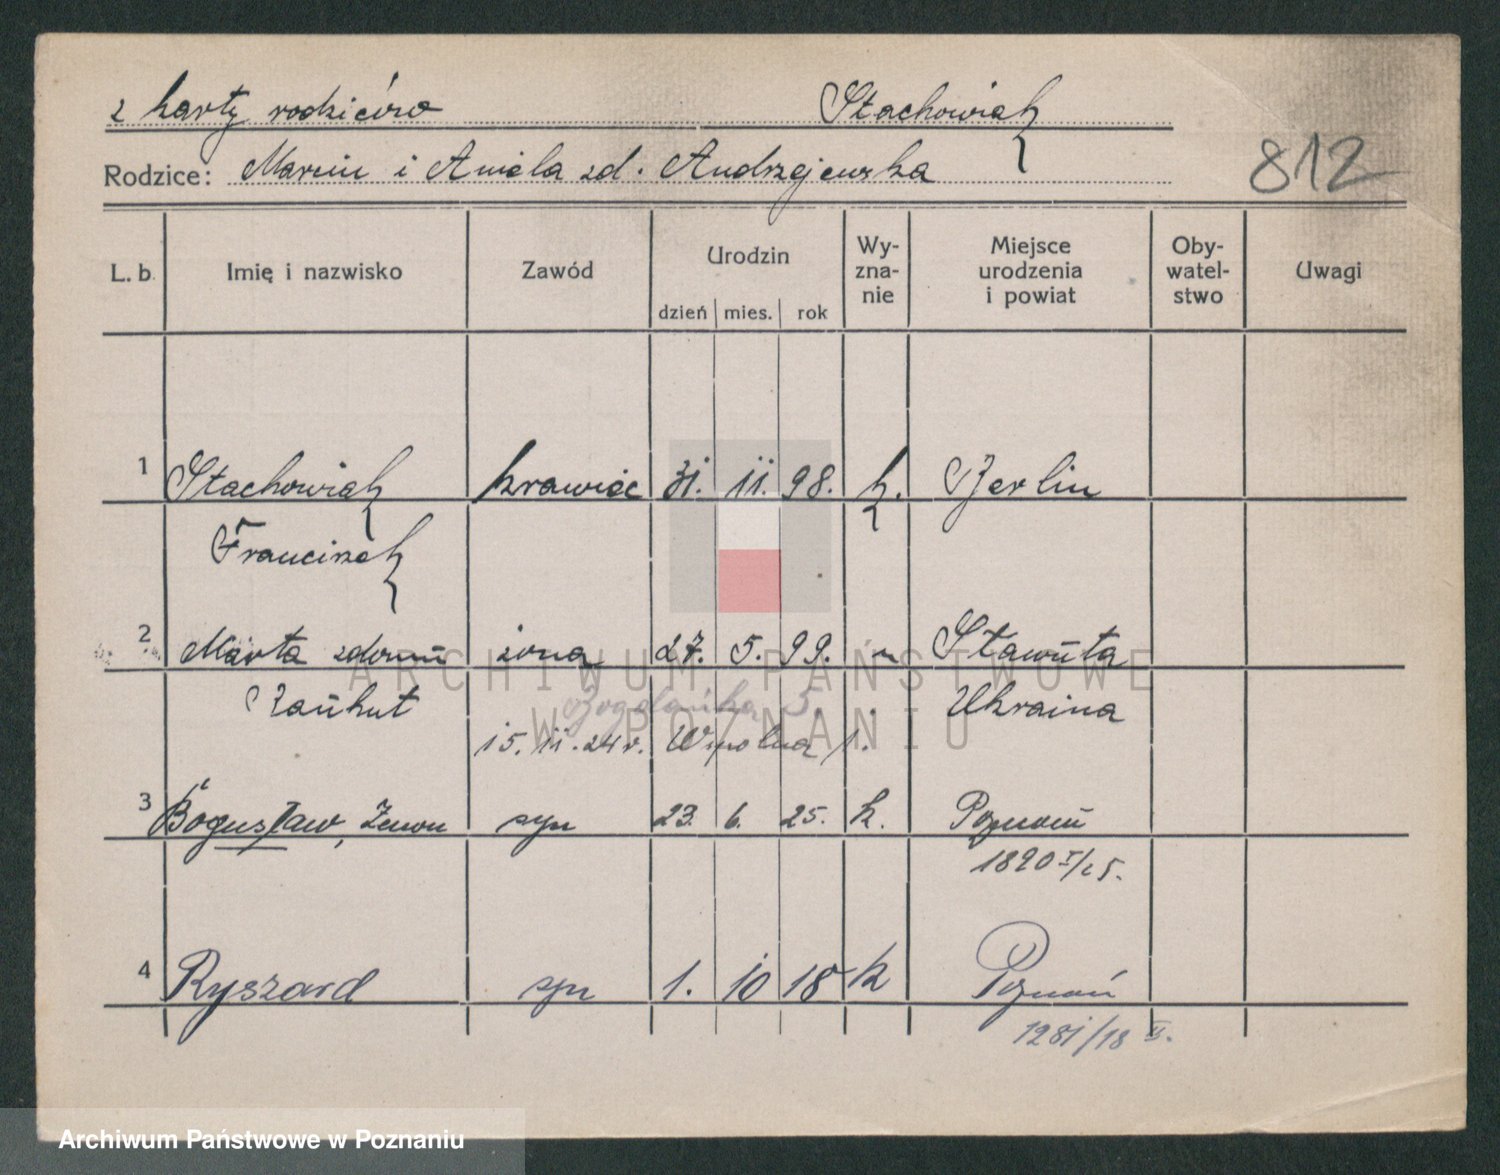 z karty rodziców Stachowiak
Rodzice: Marcin i Aniela zd. Andrzejewska
812
L. b. Imię i nazwisko Zawód Urodzin Wy-zna-nie Miejsce urodzenia i powiat Oby-watel-stwo Uwagi
dzień mies. rok
1 Stachowiak krawiec 31. 11. 98. k. Berlin
Franciszek
2 Marta zdomu żona 27. 5. 99. " Sławuta
Rauhut Ukraina
Bogdańska 5.
15. 11. 24 r. Wspólna 1.
3 Bogusław, Zenon syn 23. 6. 25. k. Poznań
1820 I/25.
4 Ryszard syn 1. 10 18 k Poznań
1281/18 II.
ARCHIWUM PAŃSTWOWE
W POZNANIU
Archiwum Państwowe w Poznaniu